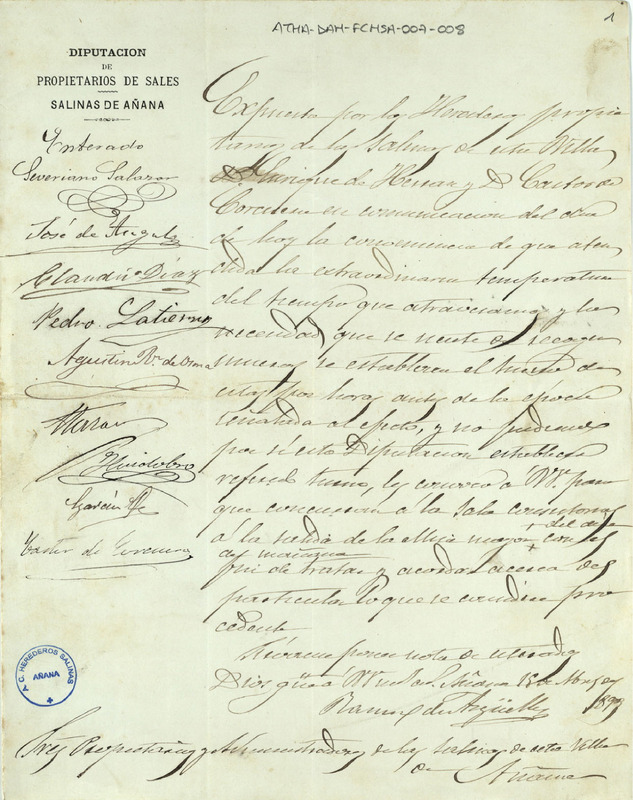 ATHA-DAH-FCHSA-007-008
1
DIPUTACION
DE
PROPIETARIOS DE SALES
SALINAS DE AÑANA
Enterado
Severiano Salazar
José de Angulo
Claudio Díaz
Pedro Latierro
Agustin Rz. de Osma
Huidobro
García
Castor de
Expuesto por los Herederos propie
tarios de las Salinas de esta Villa
Dn Enrique de Herran y Dn Castor de
en comunicacion del dia
de hoy la conveniencia de que aten
dida la extraordinaria temperatura
del tiempo que atravesamos y la
necesidad que se siente de recoger
mueras se establezca el turno de
estas por horas antes de la epoca
señalada al efecto, y no pudiendo
por si esta Diputacion establecer
referido turno, les convoca a VV. para
que concurran á la Sala
á la salida de la Misa mayor + del dia
de mañana + con el
fin de tratar y acordar acerca del
particular lo que se considere pro
cedente
Sirvanse poner nota de enterados
Dios gue á VV. Añana 18 de
Ramon de Argüelles 189
Sres Propietarios y Administradores de las Salinas de esta Villa
de Añana
A C. HEREDEROS SALINAS
AÑANA